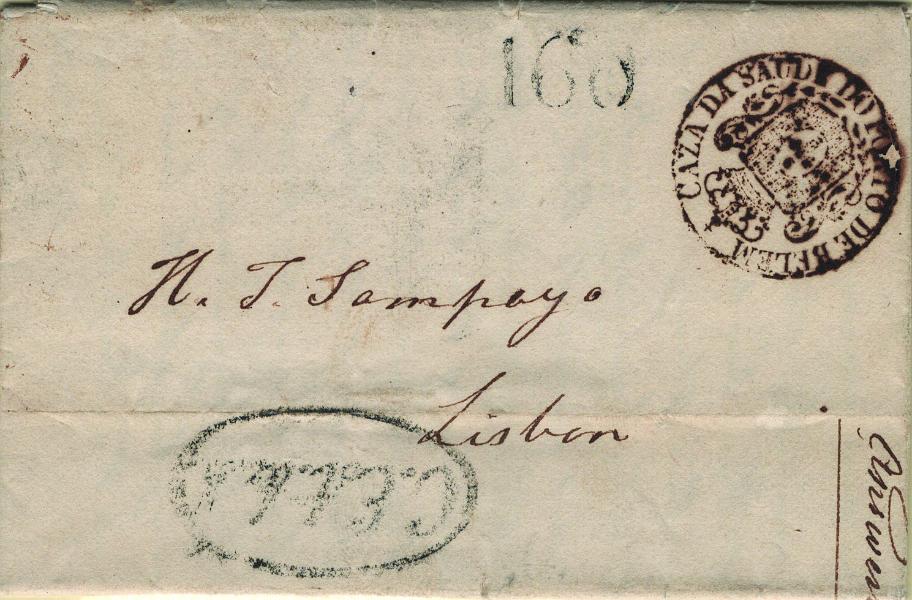 160
CAZA DA SAUDE DO PORTO DE BELEM
H. T. Sampayo
Lisbon